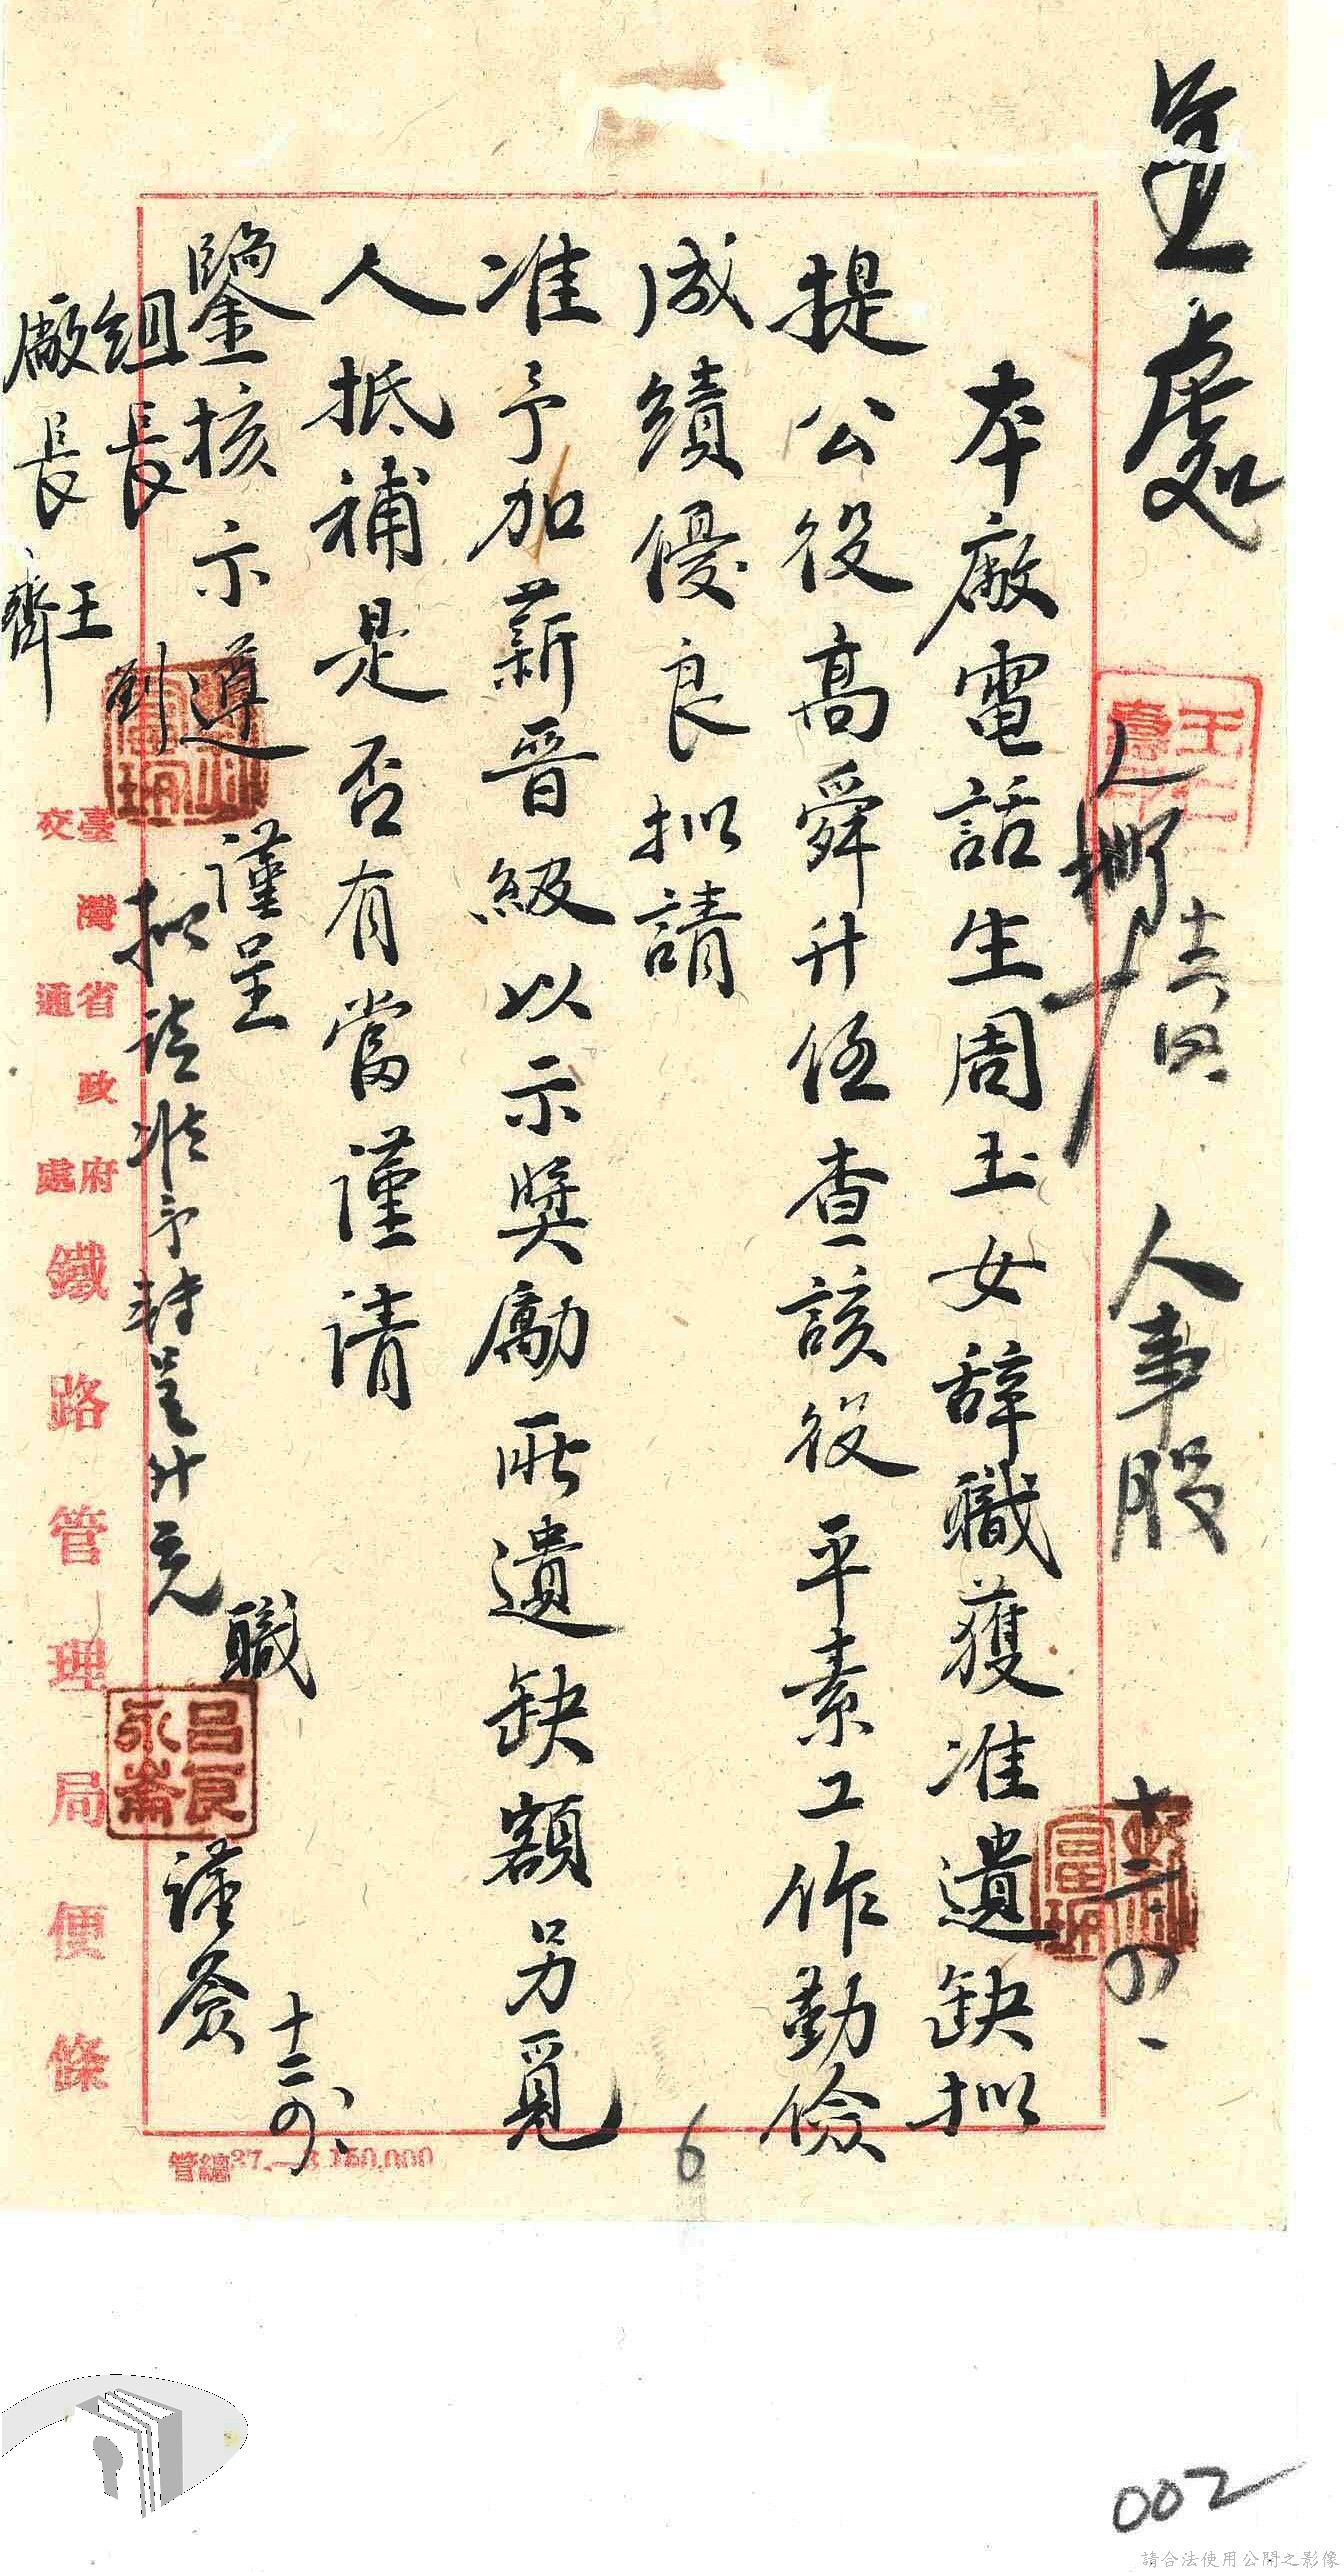 呈處
人事股
十二、四、
本廠電話生周玉女辞職獲准遺缺拟
提公役高舜升任查該役平素工作勤儉
成績優良拟請
准予加薪晋級以示奨勵所遺缺額另覓
人抵補是否有當謹請
鑒核示遵
謹呈
組長劉
廠長王
齊
職
呂良
永蕎
謹簽
十二、四、
拟請准予轉呈升充
臺灣省政府
交通處
鐵路管理局便條
管總37.—3.150,000
6
002
請合法使用公開之影像